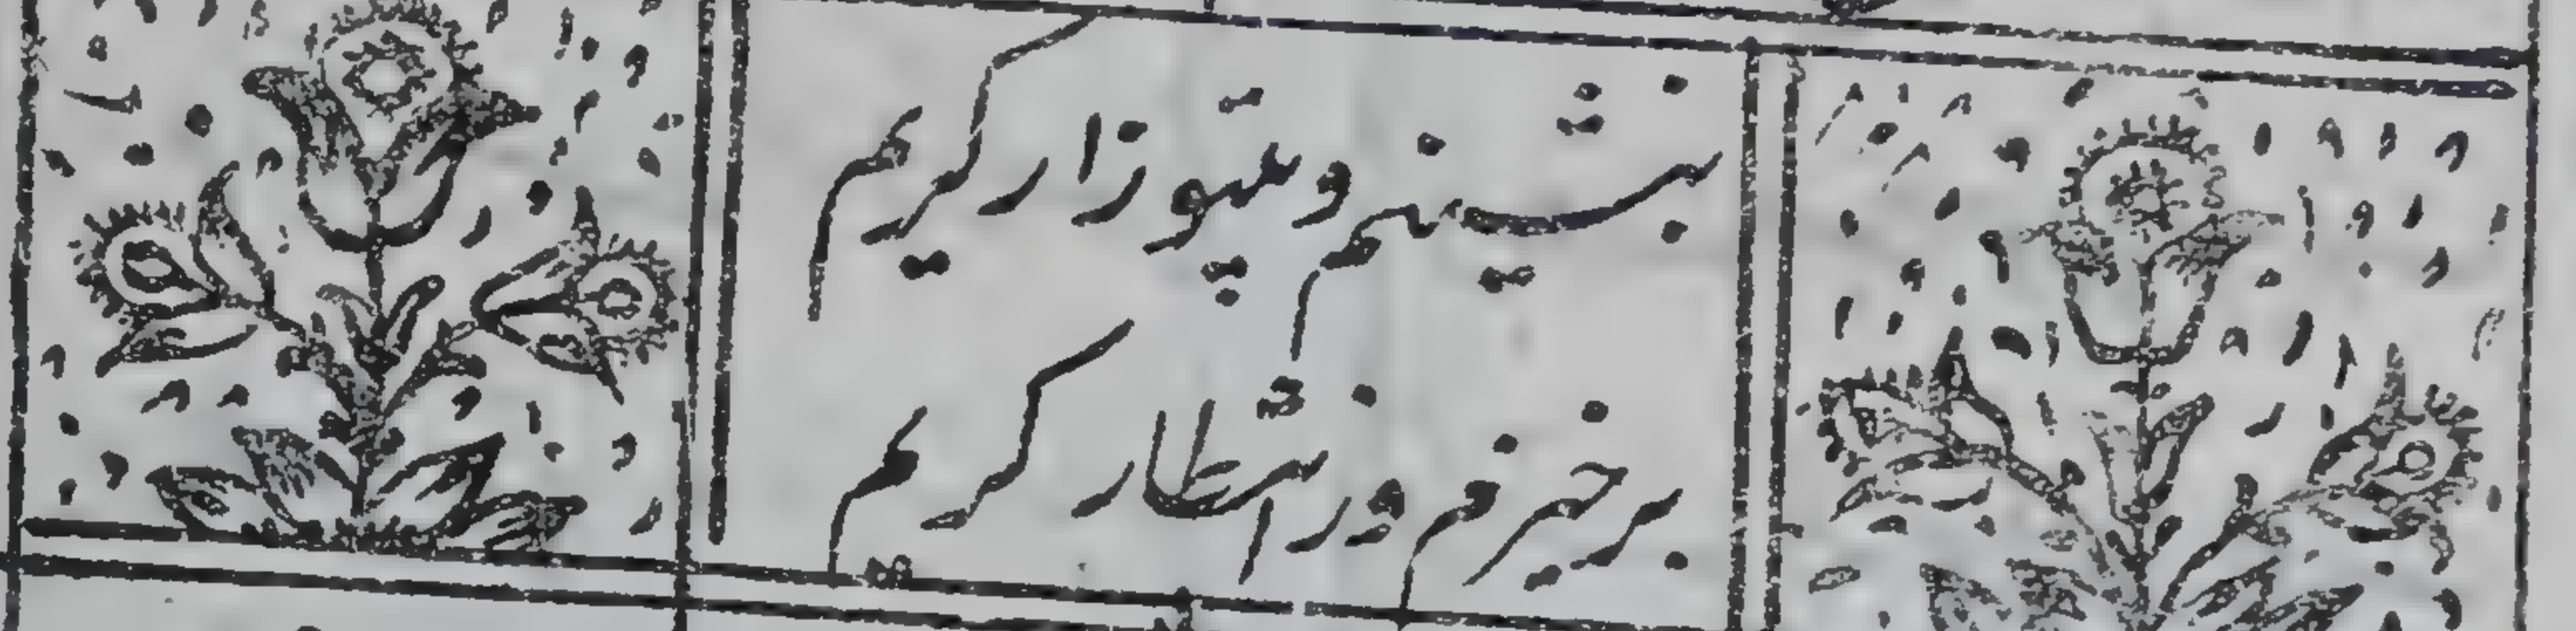 بنشینم و بیتو زار کریم
برخیزم وز انتظار کریم